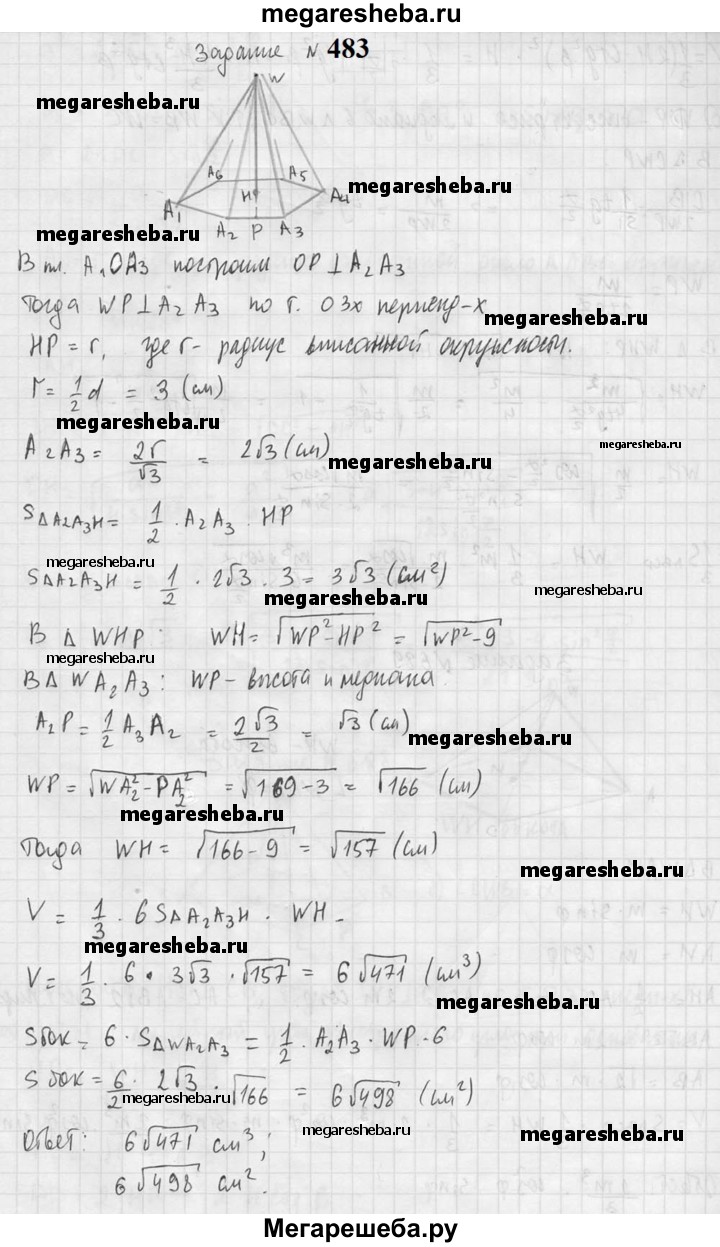 megaresheba.ru
Задание № 483
W
megaresheba.ru
A6 A5
megaresheba.ru
A1 H A4
megaresheba.ru
A2 P A3
В пл. A1OA3 построим OP⊥A2A3
Тогда WP⊥A2A3 по т. О 3х перпенд-х
megaresheba.ru
HP = r, где r - радиус вписанной окружности.
r = 1/2 d = 3 (см)
megaresheba.ru
A2A3 = 2r/√3 = 2√3 (см)
megaresheba.ru
megaresheba.ru
S△A2A3H = 1/2 · A2A3 · HP
megaresheba.ru
S△A2A3H = 1/2 · 2√3 · 3 = 3√3 (см²)
megaresheba.ru
megaresheba.ru
В △ WHP: WH = √WP²-HP² = √WP²-9
megaresheba.ru
В △ WA2A3: WP - высота и медиана.
A2P = 1/2 A3A2 = 2√3/2 = √3 (см)
megaresheba.ru
WP = √WA2²-PA2² = √169-3 = √166 (см)
megaresheba.ru
Тогда WH = √166-9 = √157 (см)
megaresheba.ru
V = 1/3 · 6S△A2A3H · WH -
megaresheba.ru
V = 1/3 · 6 · 3√3 · √157 = 6√471 (см³)
megaresheba.ru
Sбок = 6 · S△WA2A3 = 1/2 · A2A3 · WP · 6
Sбок = 6/2 · 2√3 · √166 = 6√498 (см²)
megaresheba.ru
megaresheba.ru
Ответ: 6√471 см³;
megaresheba.ru
megaresheba.ru
6√498 см².
Мегарешеба.ру